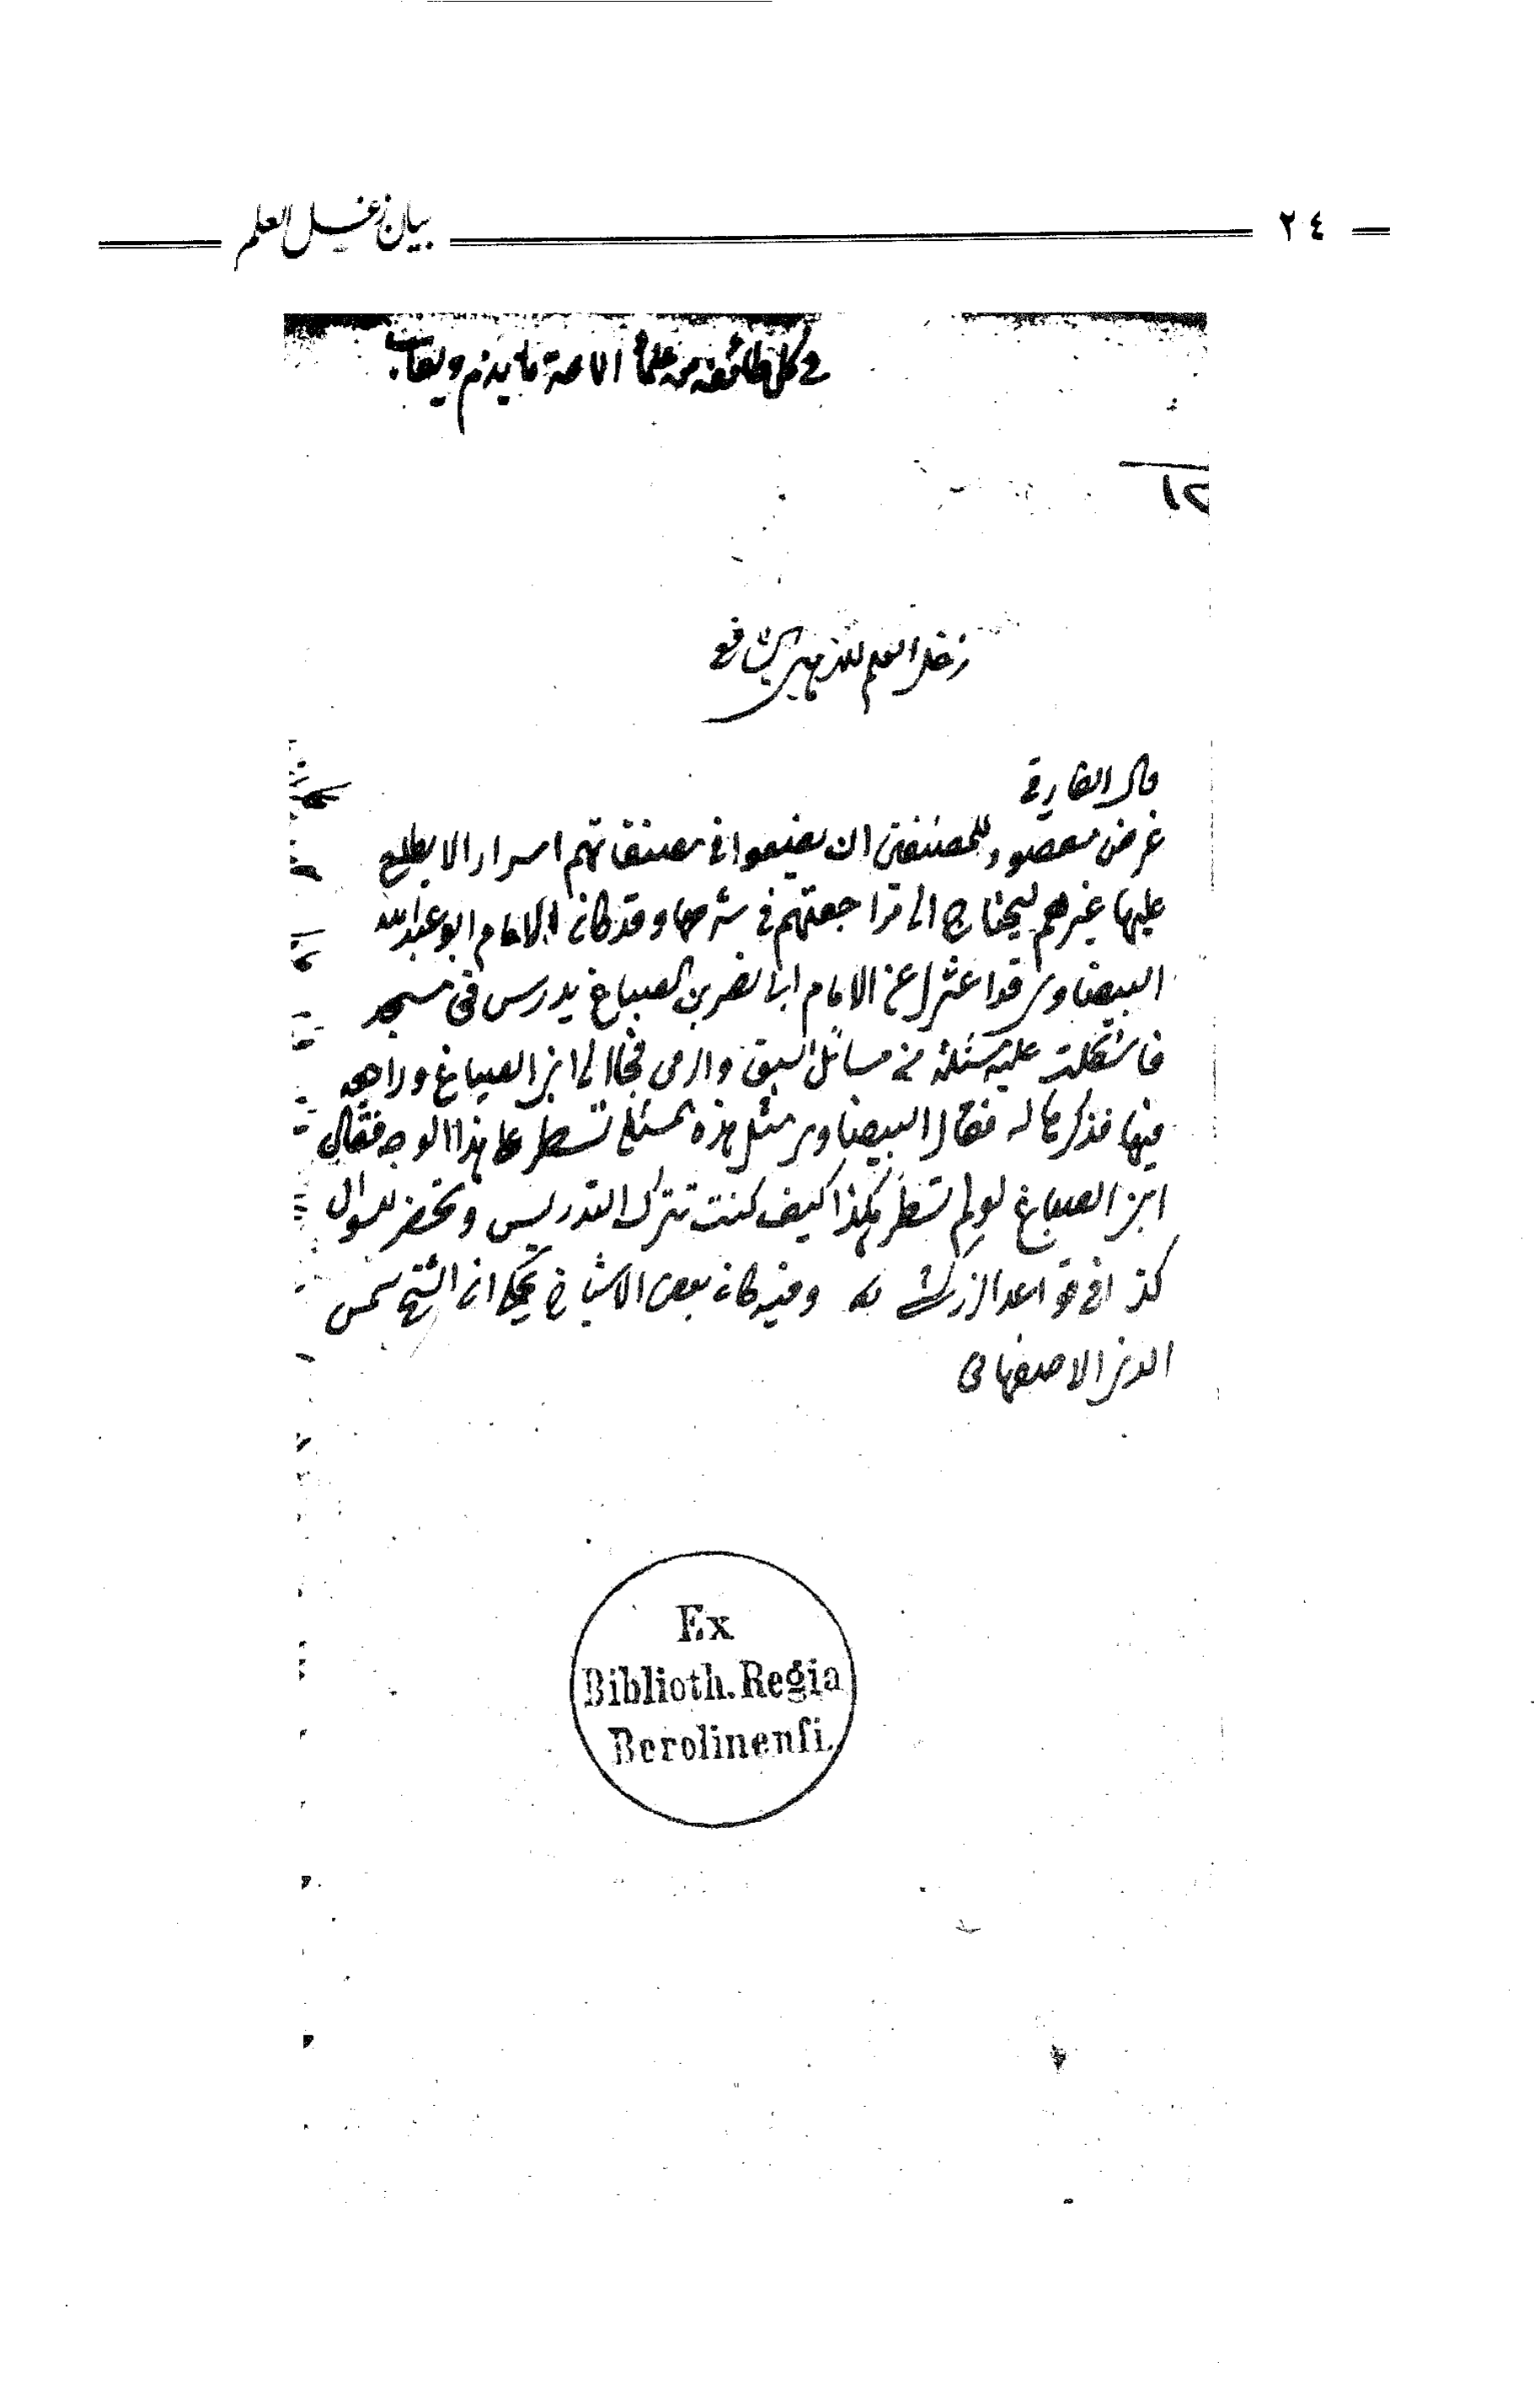 ٢٤
بيان زغل العلم
في كل طائفة من علماء الامة ما يذم ويعاب
١٢
زغل العلم للذهبي الشافعي
قال الفارقي
غرض مقصود للمصنفين ان يضيعوا في مصنفاتهم اسرارا لا يطلع
عليها غيرهم ليحتاج الى مراجعتهم في شرحها وقد كان الامام ابو عبد الله
البيضاوي عن الامام ابي نصر بن الصباغ يدرس في مسجد
فاشكلت عليه مسئلة من مسائل السبق والرمي فجا الى ابن الصباغ وراجعه
فيها فذكرها له فقال البيضاوي مثل هذه المسئلة تسطر على هذا الوجه فقال
ابن الصباغ لو لم تسطر هكذا كيف كنت تترك التدريس وتحضر للسوال
كذا في قواعد الزركشي وفيه كان بعض الاشياخ يحكي ان الشيخ شمس
الدين الاصفهاني
Ex
Biblioth. Regia
Berolinenſi.